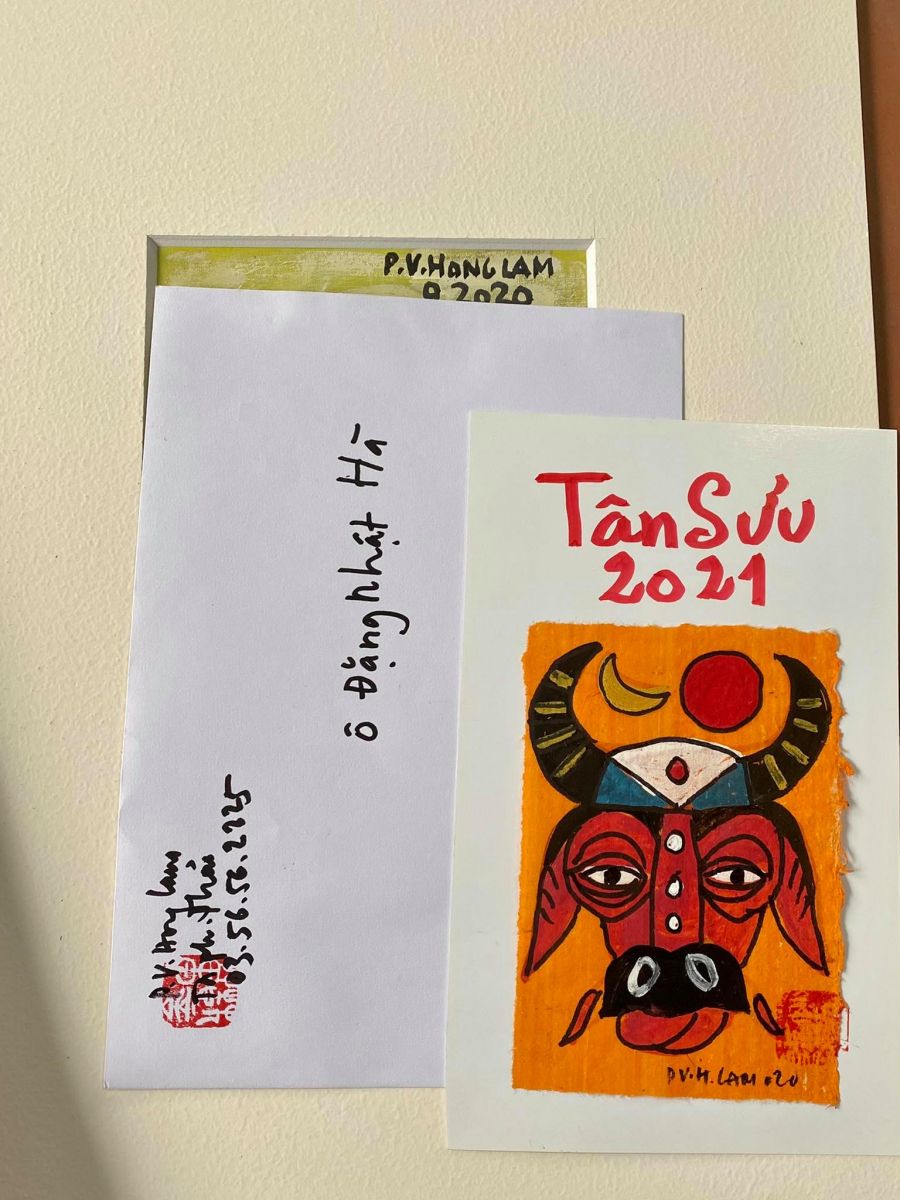 P.V.HONG LAM
9.2020
ô Đặng Nhật Hà
P.V. Hong Lam
03.56.56.2225
Tân Sửu
2021
P.V.H.LAM.20